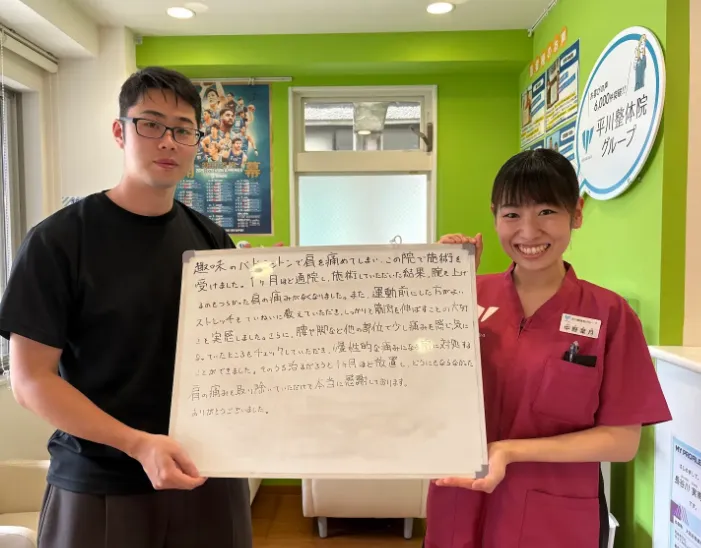 趣味のバドミントンで肩を痛めてしまい、この院で施術を
受けました。1ヶ月ほど通院し、施術していただいた結果、腕を上げ
るのもつらかった肩の痛みがなくなりました。また、運動前にした方がよい
ストレッチをていねいに教えていただき、しっかりと筋肉を伸ばすことの大切
さを実感しました。さらに、腰や脚など他の部位で少し痛みを感じ気に
なっていたところもチェックしていただき、慢性的な痛みになる前に対処する
ことができました。そのうち治るだろうと1ヶ月ほど放置し、どうにもならなかった
肩の痛みを取り除いていただけて本当に感謝しております。
ありがとうございました。
6,000件
平川整体院
グループ
幕
MY PROFILE
はじめまして、
です。